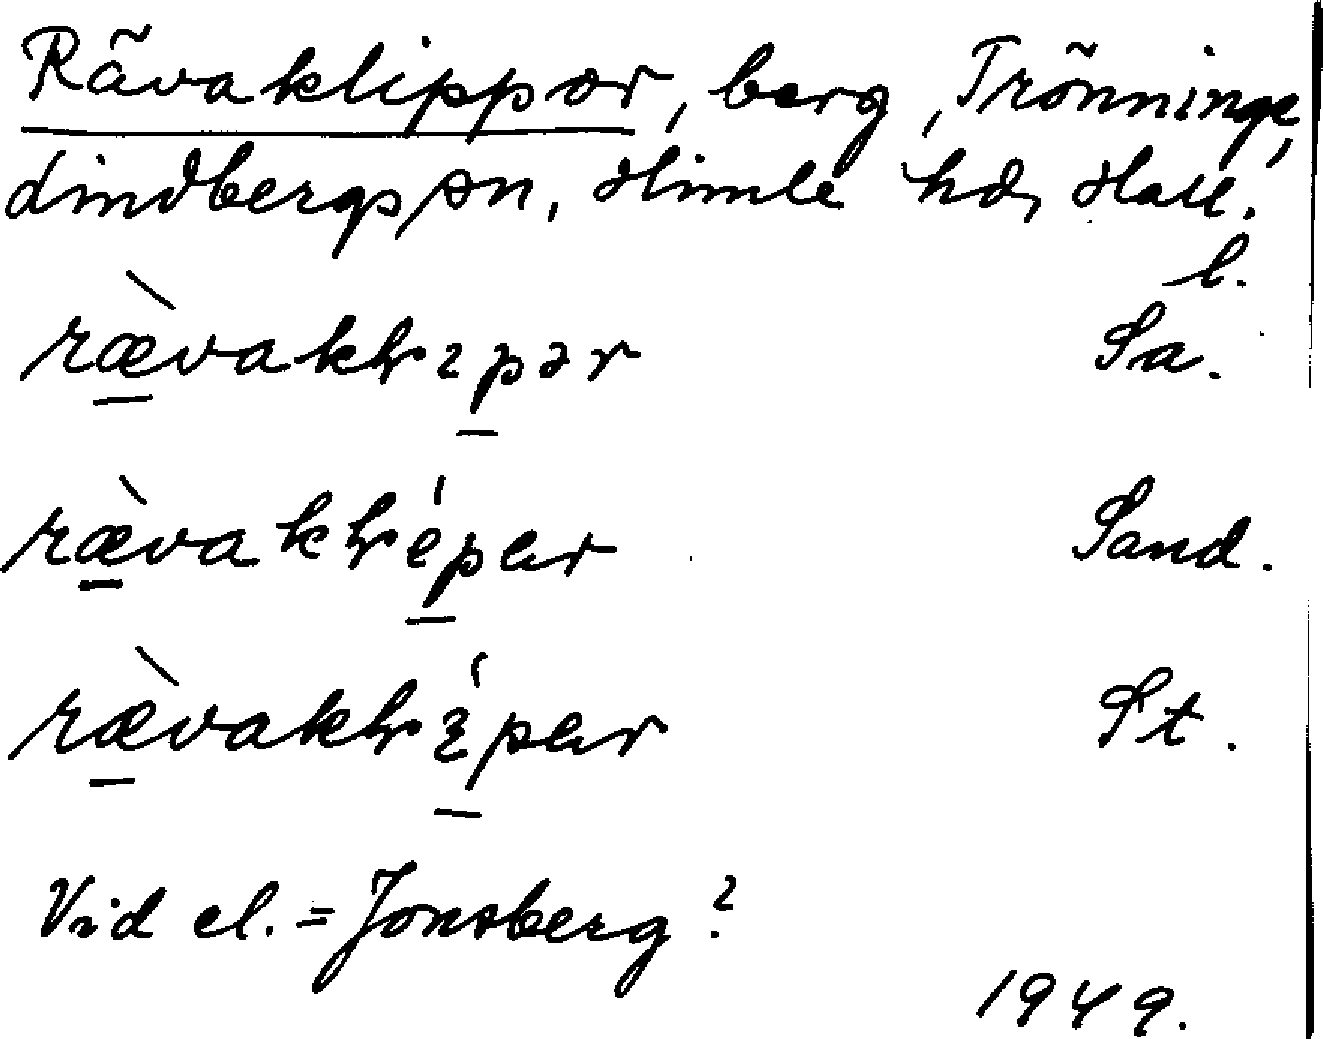 Rävaklippor, berg, Trönninge,
Lindbergs sn, Himle hd, Hall. l.
ræ̀vaklıpər Sa.
ræ̀vaklépar Sand.
ræ̀vaklı́par St.
Vid el. = Jonsberg?
1949.